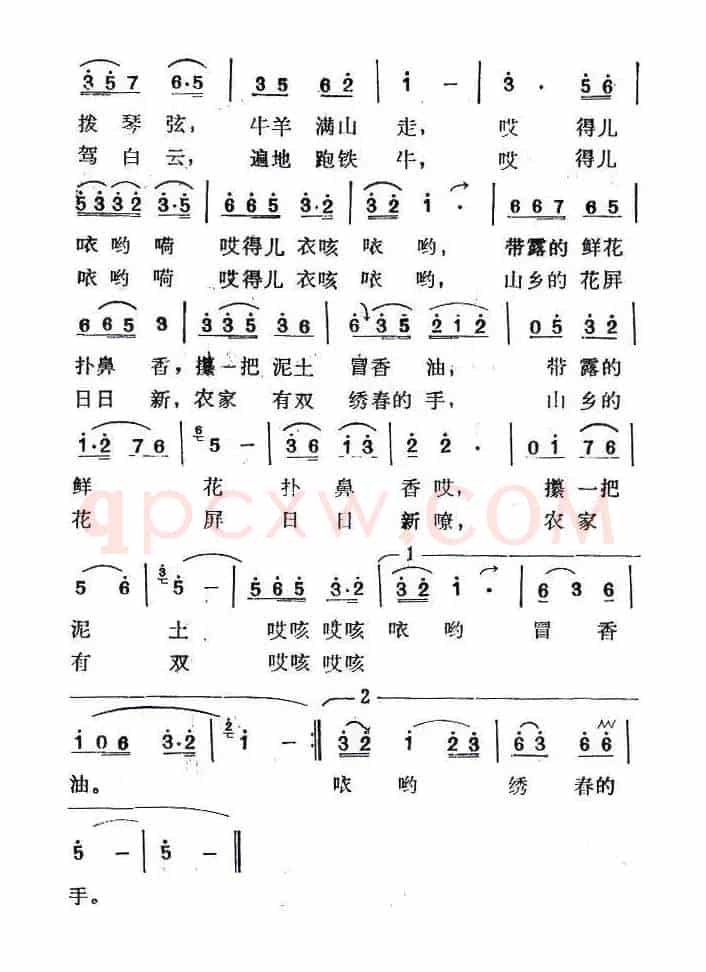 3 5 7 6·5 | 3 5 6 2 | i - | 3 · 5 6 |
拨琴弦， 牛羊满山 走， 哎 得儿
驾白云， 遍地跑铁 牛， 哎 得儿
5 3 3 2 3·5 | 6 6 5 3·2 | 3 2 1 · | 6 6 7 6 5 |
咴哟嗬 哎得儿 衣咳 咴 哟， 带露的 鲜花
咴哟嗬 哎得儿 衣咳 咴 哟， 山乡的 花屏
6 6 5 3 | 3 3 5 3 6 | 6 3 5 2 1 2 | 0 5 3 2 |
扑鼻 香， 攥一把 泥土 冒香 油， 带露的
日日 新， 农家 有双 绣春的 手， 山乡的
1·2 7 6 | 6 5 - | 3 6 1 3 | 2 2 · | 0 1 7 6 |
鲜 花 扑 鼻 香哎， 攥一把
花 屏 日 日 新嘹， 农家
qpcxw.COM
1
5 6 | 3 5 - | 5 6 5 3·2 | 3 2 1 · | 6 3 6 |
泥 土 哎咳 哎咳 咴 哟 冒 香
有 双 哎咳 哎咳
2
1 0 6 3·2 | 2 1 - :| 3 2 1 2 3 | 6 3 6 6 |
油。 咴 哟 绣 春的
5 - | 5 - ‖
手。